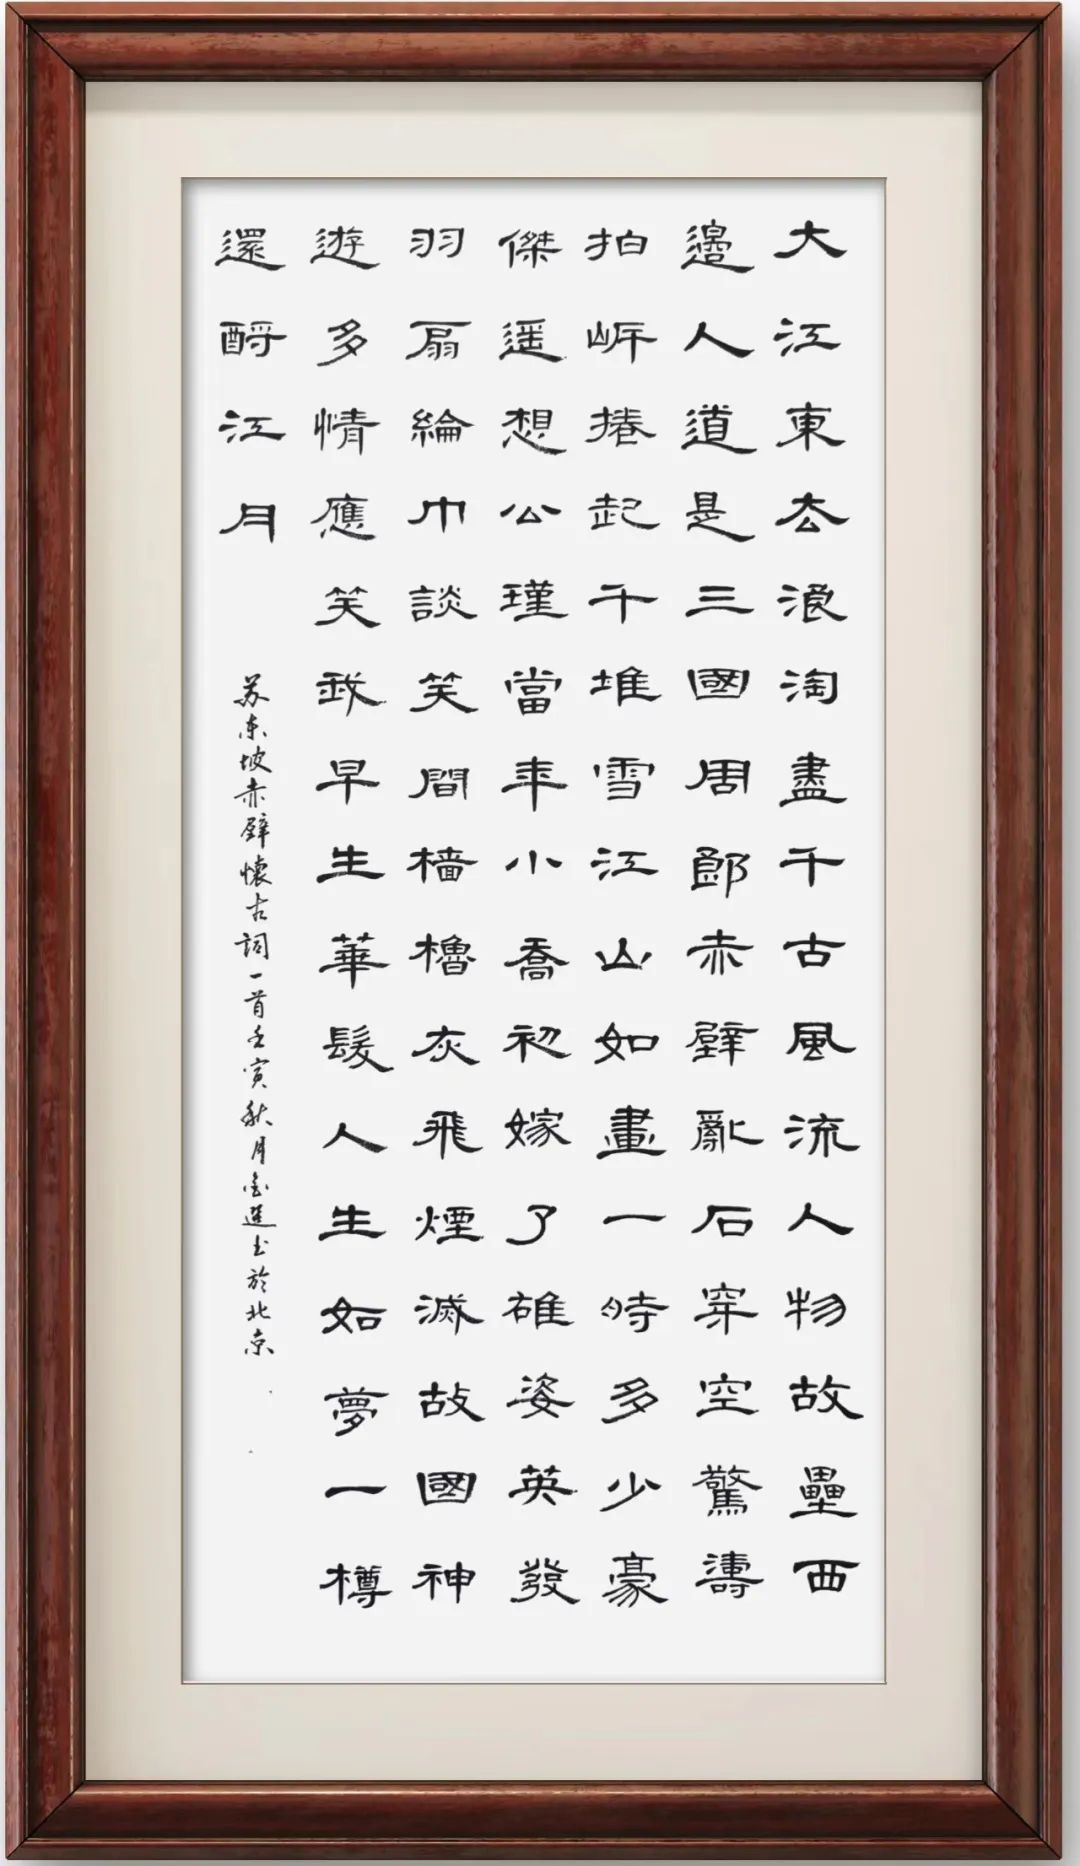 大江東去浪淘盡千古風流人物故壘西
邊人道是三國周郎赤壁亂石穿空驚濤
拍岍捲起千堆雪江山如畫一時多少豪
傑遥想公瑾當年小喬初嫁了雄姿英發
羽扇綸巾談笑間檣櫓灰飛煙滅故國神
遊多情應笑我早生華髮人生如夢一樽
還酹江月
苏东坡赤壁懷古詞一首壬寅秋月金選书於北京